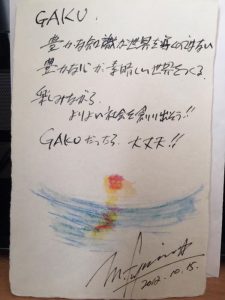 GAKU.
豊かな知識が世界を
豊かな心が素晴しい世界をつくる。
楽しみながら
よりよい社会を創り出そう!!
GAKUだったら、大丈夫!!
2017.10.15.